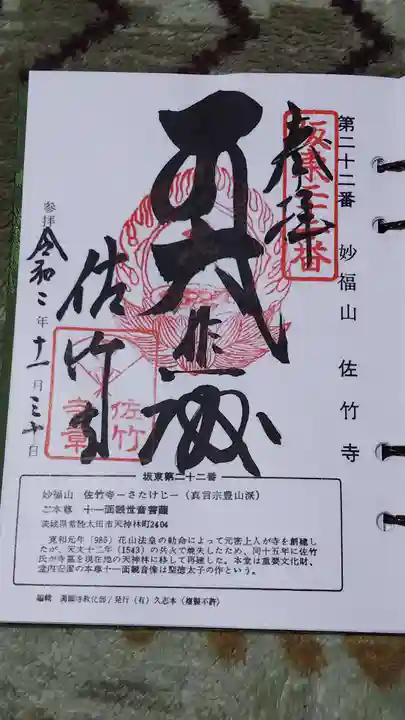 第二十二番 妙福山 佐竹寺
奉拝
坂東二十二番
佐竹寺
佐竹
寺章
参拝 令和二年十一月三十日
坂東第二十二番
妙福山 佐竹寺―さたけじ―(真言宗豊山派)
ご本尊 十一面観世音菩薩
茨城県常陸太田市天神林町2404
寛和元年(985)花山法皇の勅命によって元密上人が寺を創建し
たが、天文十二年(1543)の兵火で焼失したため、同十五年に佐竹
氏が寺基を現在地の天神林に移して再建した。本堂は重要文化財、
堂内安置の本尊十一面観音像は聖徳太子の作という。
編輯 満願寺教化部/発行(有)久志本(複製不許)